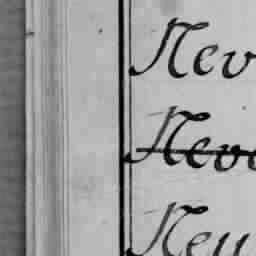 Nev
Neve
Neu